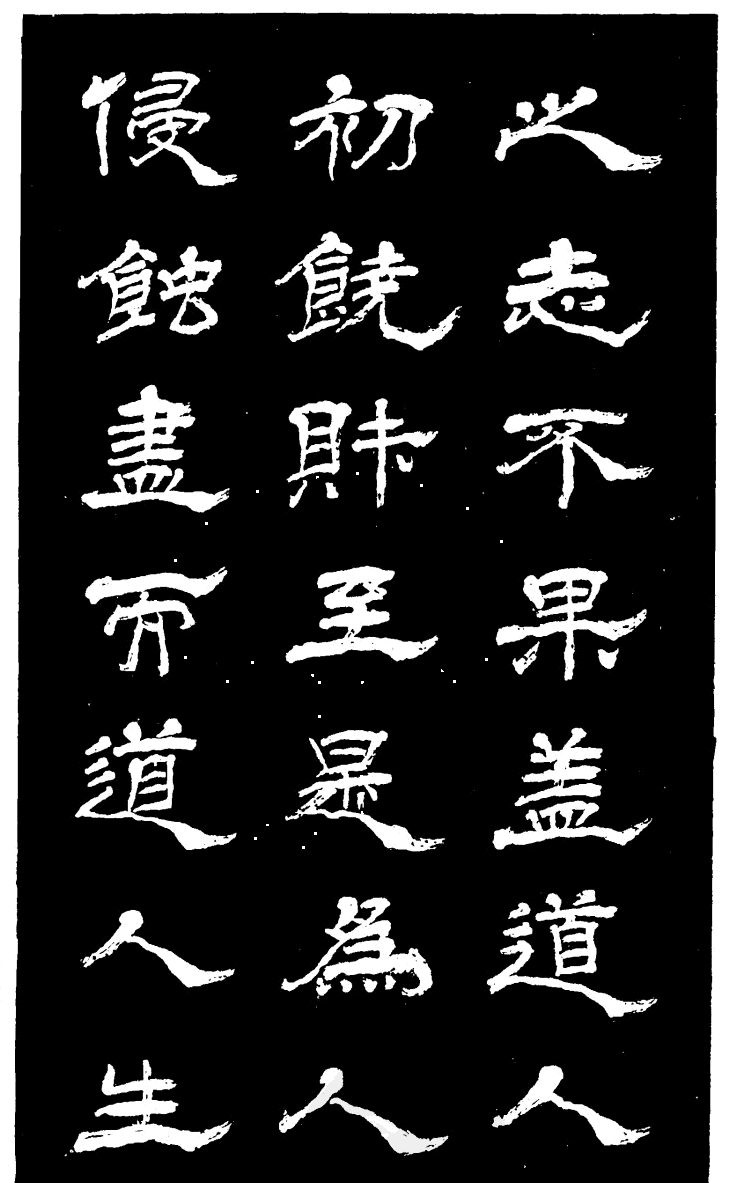 之志不果盖道人
初饒財至是為人
侵蝕盡而道人生